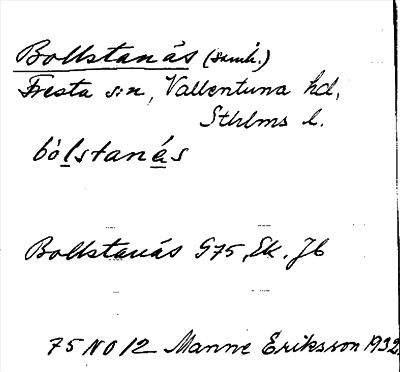 Bollstanäs (samh.)
Fresta sn, Vallentuna hd,
Sthlms l.
bòlstanäs
Bollstanäs G75, Ek. Jb
75 NO 12 Manne Eriksson 1932.